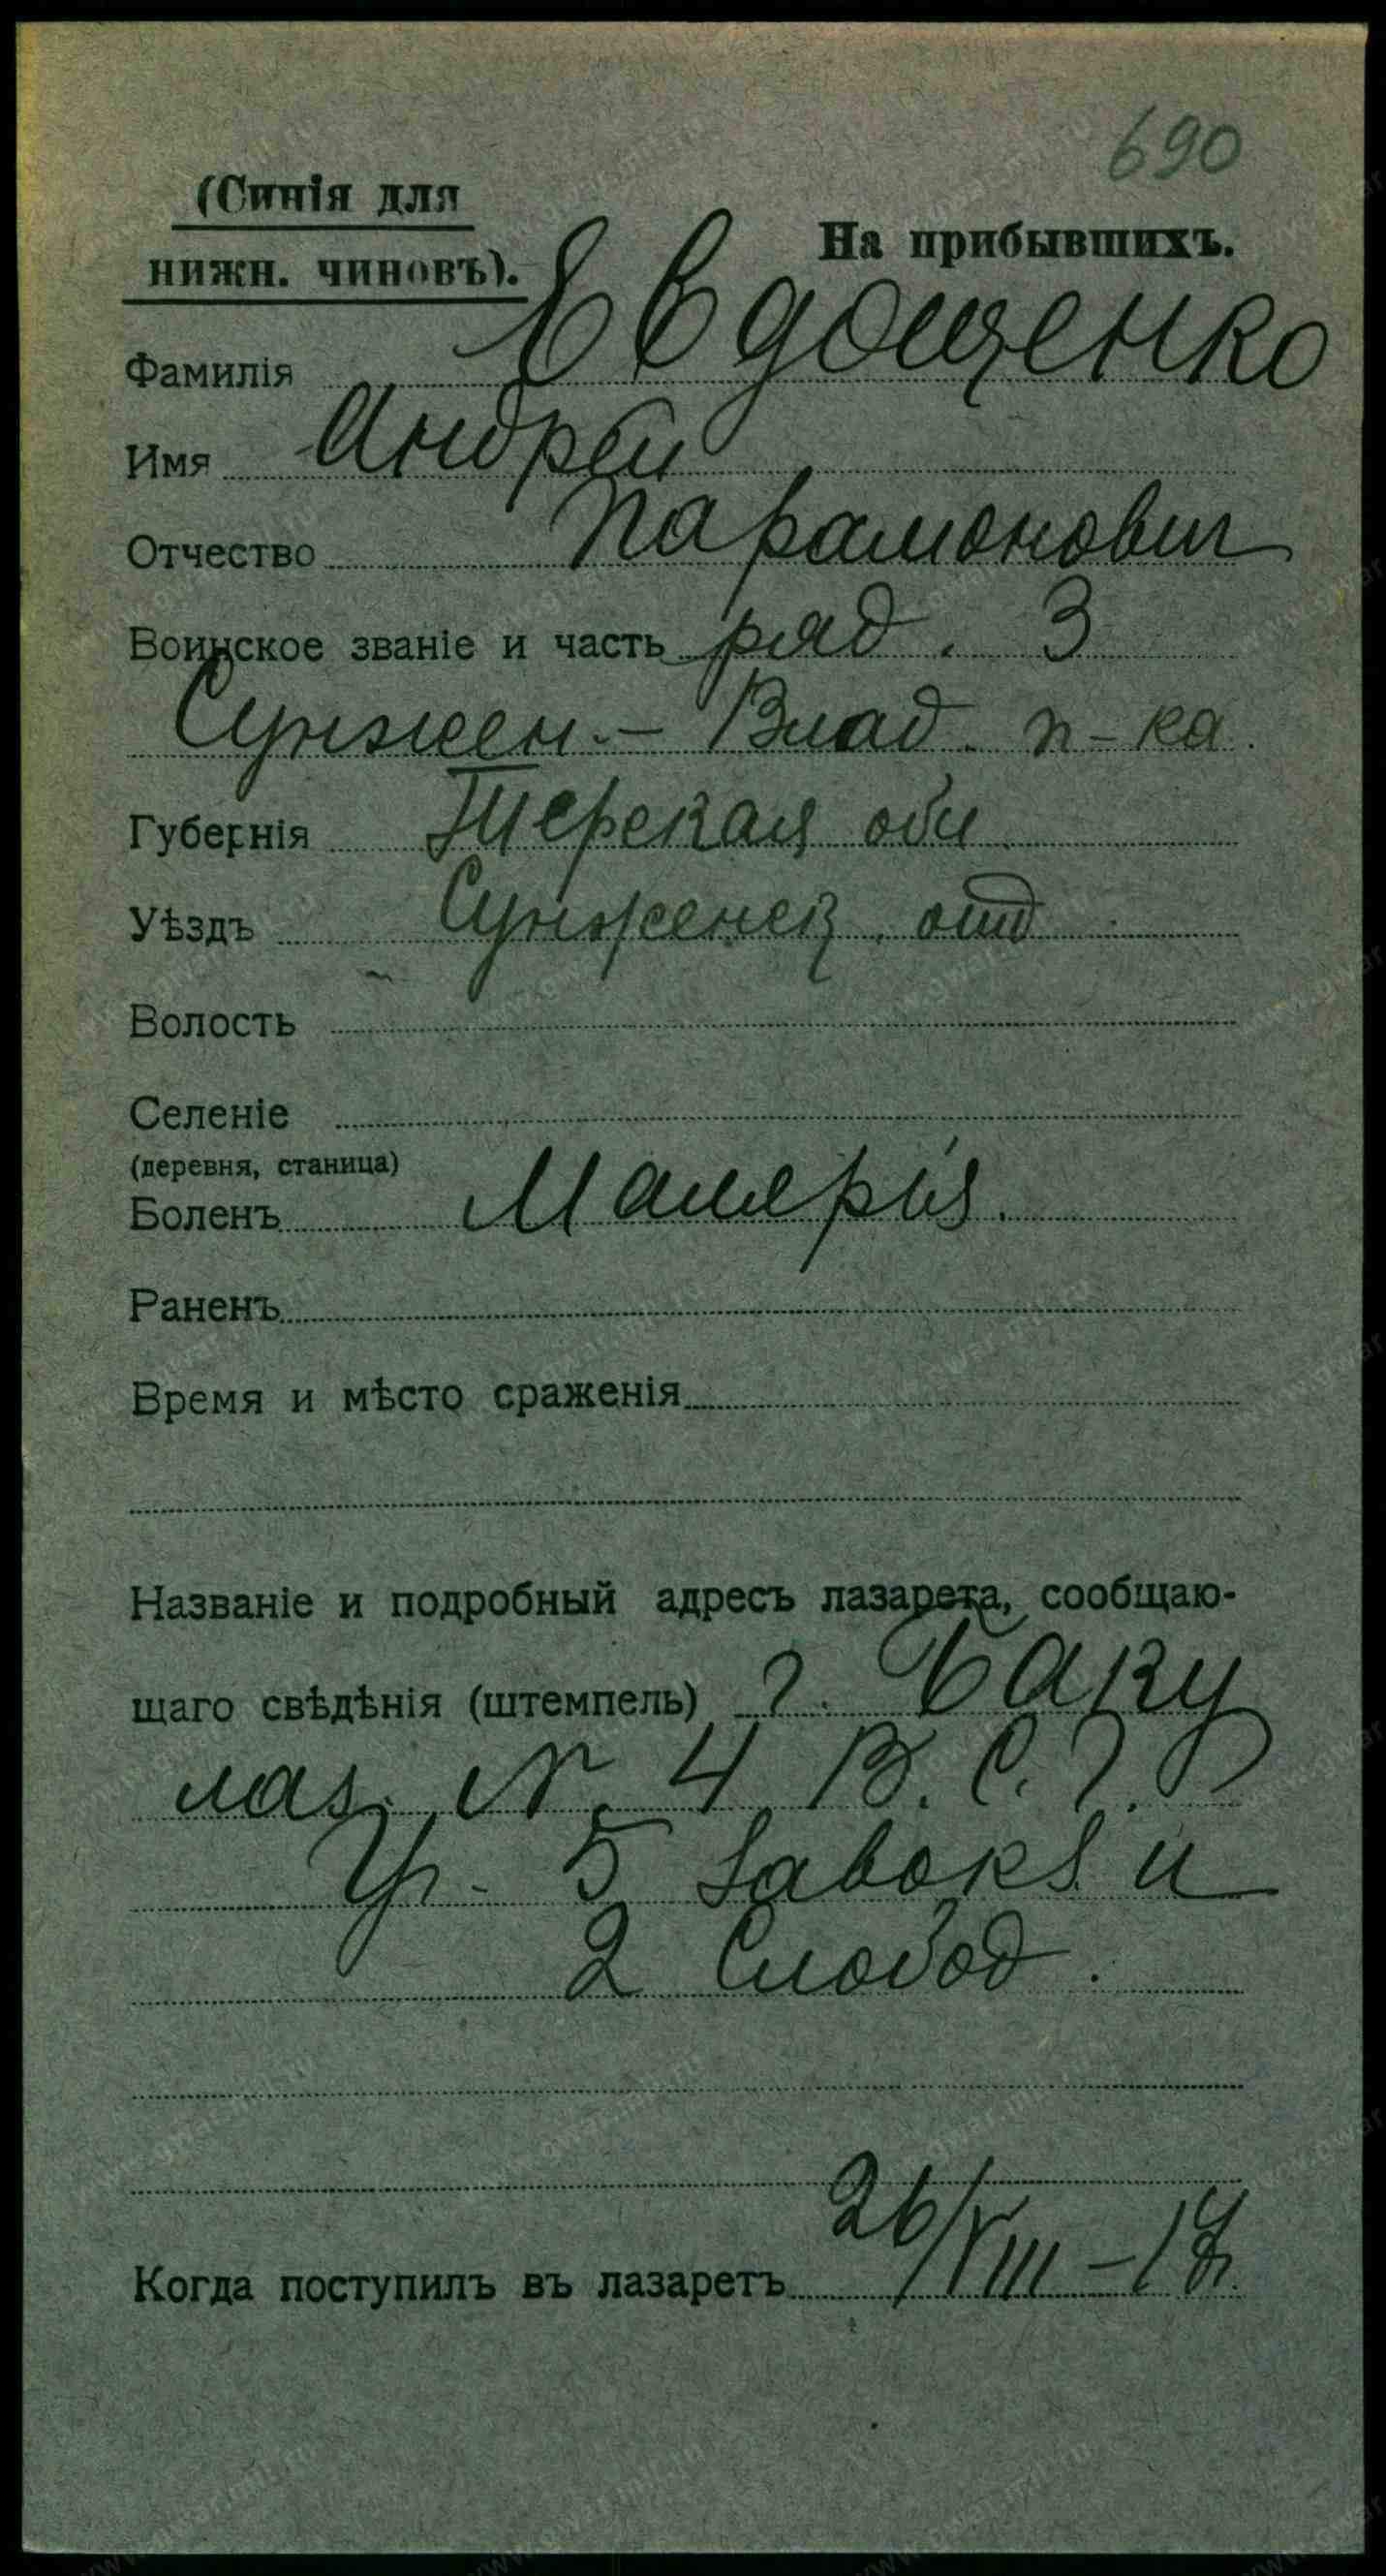 690
(Синія для
нижн. чиновъ).
На прибывшихъ.
Фамилія Евдощенко
Имя Андрей
Отчество Парамонович
Воинское званіе и часть ряд. 3
Сунжен.- Влад. п-ка.
Губернія Терская обл
Уѣздъ Сунженск. отд
Волость
Селеніе
(деревня, станица)
Боленъ Малярія.
Раненъ
Время и мѣсто сраженія
Названіе и подробный адресъ лазарета, сообщаю-
щаго свѣдѣнія (штемпель) г. Баку
лаз. № 4 В. С. Г.
Уг. 5 Завокз. и
2 Слобод.
Когда поступилъ въ лазаретъ 26/VIII-17г.